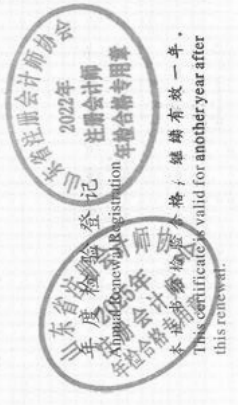 年度检验登记
Annual Renewal Registration
本证书经检验合格,继续有效一年。
This certificate is valid for another year after
this renewal.
山东省注册会计师协会
2022年
注册会计师
年检合格专用章
山东省注册会计师协会
注册会计师
年检合格专用章